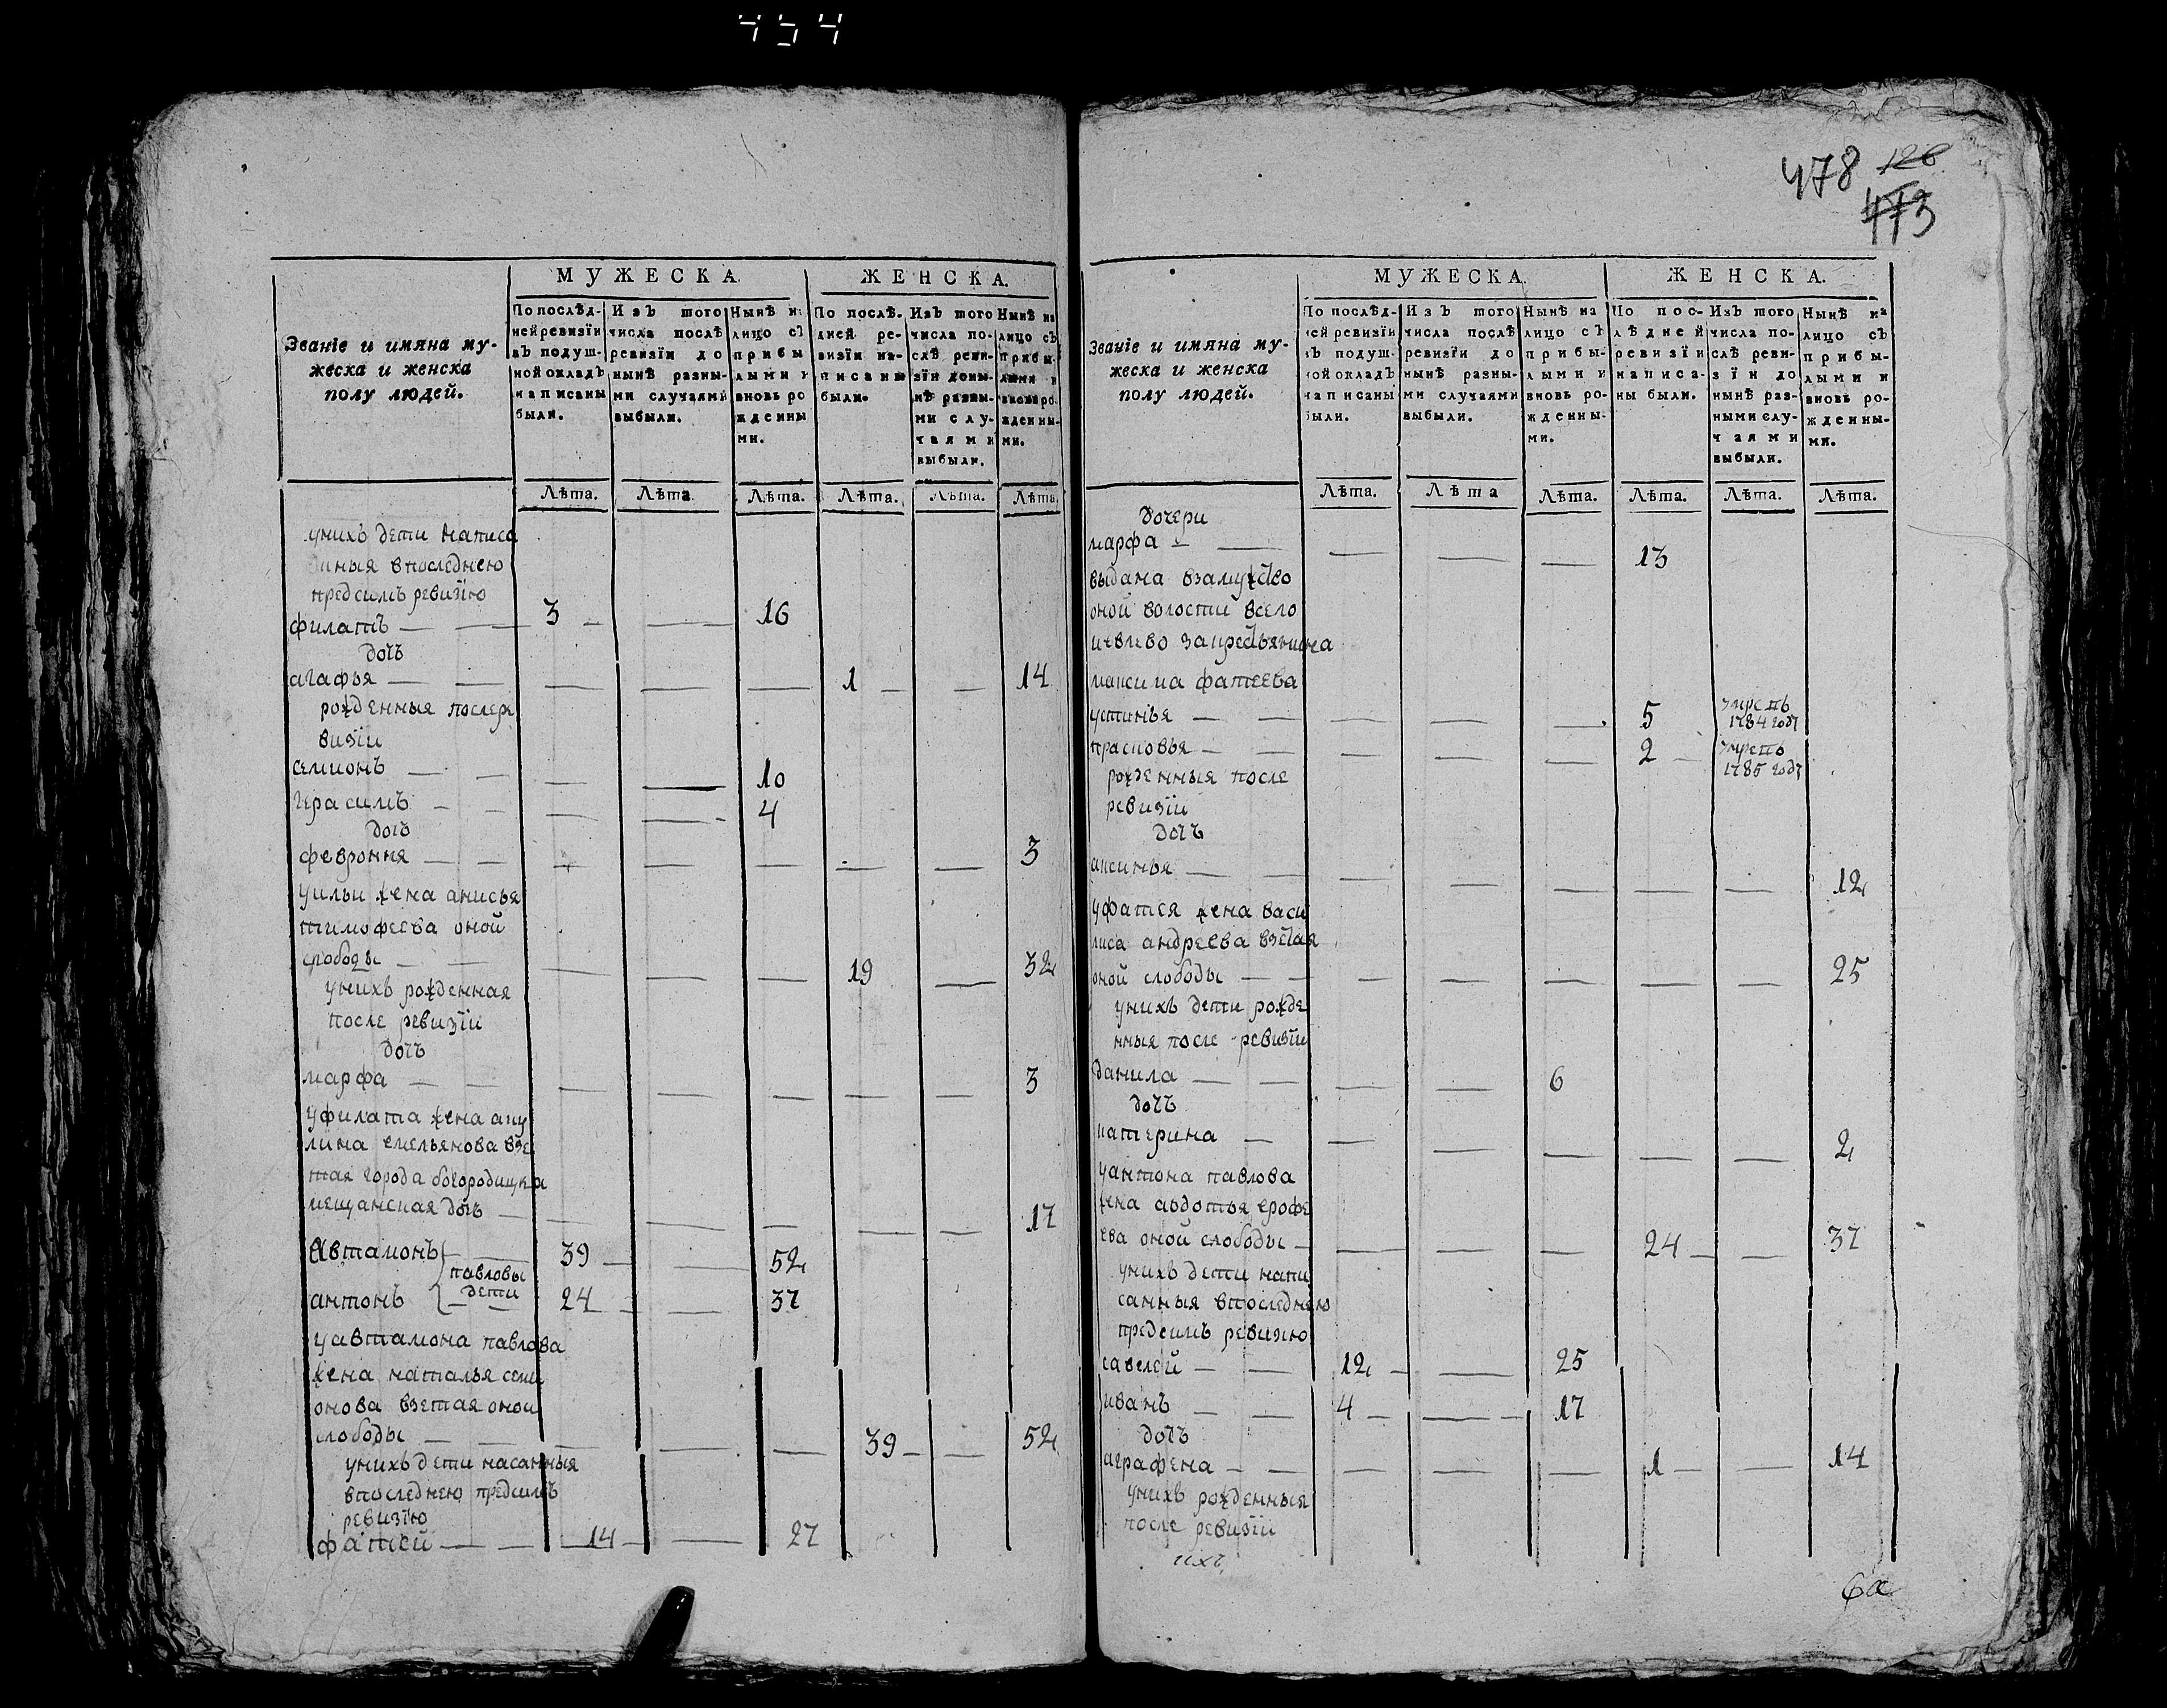 454
МУЖЕСКА.
ЖЕНСКА.
Званіе и имяна му-
жеска и женска
полу людей.
По послѣд-
ней ревизіи
въ подуш-
ной окладъ
написаны
были.
Изъ того
числа послѣ
ревизіи до
нынѣ разны-
ми случаями
выбыли.
Нынѣ на
лицо съ
прибы
лыми и
вновь ро
жденны
ми.
По послѣ-
дней ре-
визіи на-
писаны
были.
Изъ того
числа по-
слѣ реви-
зіи доны-
нѣ разны-
ми слу-
чаями
выбыли.
Нынѣ на
лицо съ
прибы-
лыми и
вновь ро-
жденны-
ми.
Лѣта. Лѣта. Лѣта. Лѣта. Лѣта. Лѣта.
унихъ дети написа
нныя впоследнею
предсимъ ревизїю
филатъ — 3 — 16
дочь
агафья — 1 — 14
рожденныя послере
визїи
семионъ — 10
герасимъ — 4
дочь
феврония — 3
уильи жена анисья
тимофеева оной
слободы — 19 — 32
унихъ рожденная
после ревизїи
дочь
марфа — 3
уфилата жена аку
лина емельянова взе
тая города богородицка
мещанская дочь — 17
Автамонъ — 39 — 52
павловы
дети
антонъ — 24 — 37
уавтамона павлова
жена наталья семи
онова взетая оной
слободы — 39 — 52
унихъ дети насанныя
впоследнею предсимъ
ревизїю
фатей — 14 — 27
478 126
473
МУЖЕСКА.
ЖЕНСКА.
Званіе и имяна му-
жеска и женска
полу людей.
По послѣд-
ней ревизіи
въ подуш-
ной окладъ
написаны
были.
Изъ того
числа послѣ
ревизіи до
нынѣ разны-
ми случаями
выбыли.
Нынѣ на
лицо съ
прибы-
лыми и
вновь ро-
жденны-
ми.
По пос-
лѣдней
ревизіи
написа-
ны были.
Изъ того
числа по-
слѣ реви-
зіи до
нынѣ раз-
ными слу-
чаями
выбыли.
Нынѣ на
лицо съ
прибы-
лыми и
вновь ро-
жденны-
ми.
Лѣта. Лѣта Лѣта. Лѣта. Лѣта. Лѣта.
дочери
марфа — 13
выдана взамужство
оной волости всело
иевлево закрестьянина
максима фатеева
устинья — 5 умреть 1784 году
прасковья — 2 умрето 1785 году
рожденныя после
ревизїи
дочь
аксинья — 12
уфатея жена васи
лиса андреева взетая
оной слободы — 25
унихъ дети рожде
нныя после ревизїи
данила — 6
дочь
катерина — 2
уантона павлова
жена авдотья ерофе
ева оной слободы — 24 — 37
унихъ дети напи
санныя впоследнею
предсимъ ревизїю
савелей — 12 — 25
иванъ — 4 — 17
дочь
аграфена — 1 — 14
унихъ рожденныя
после ревизїи
ихъ